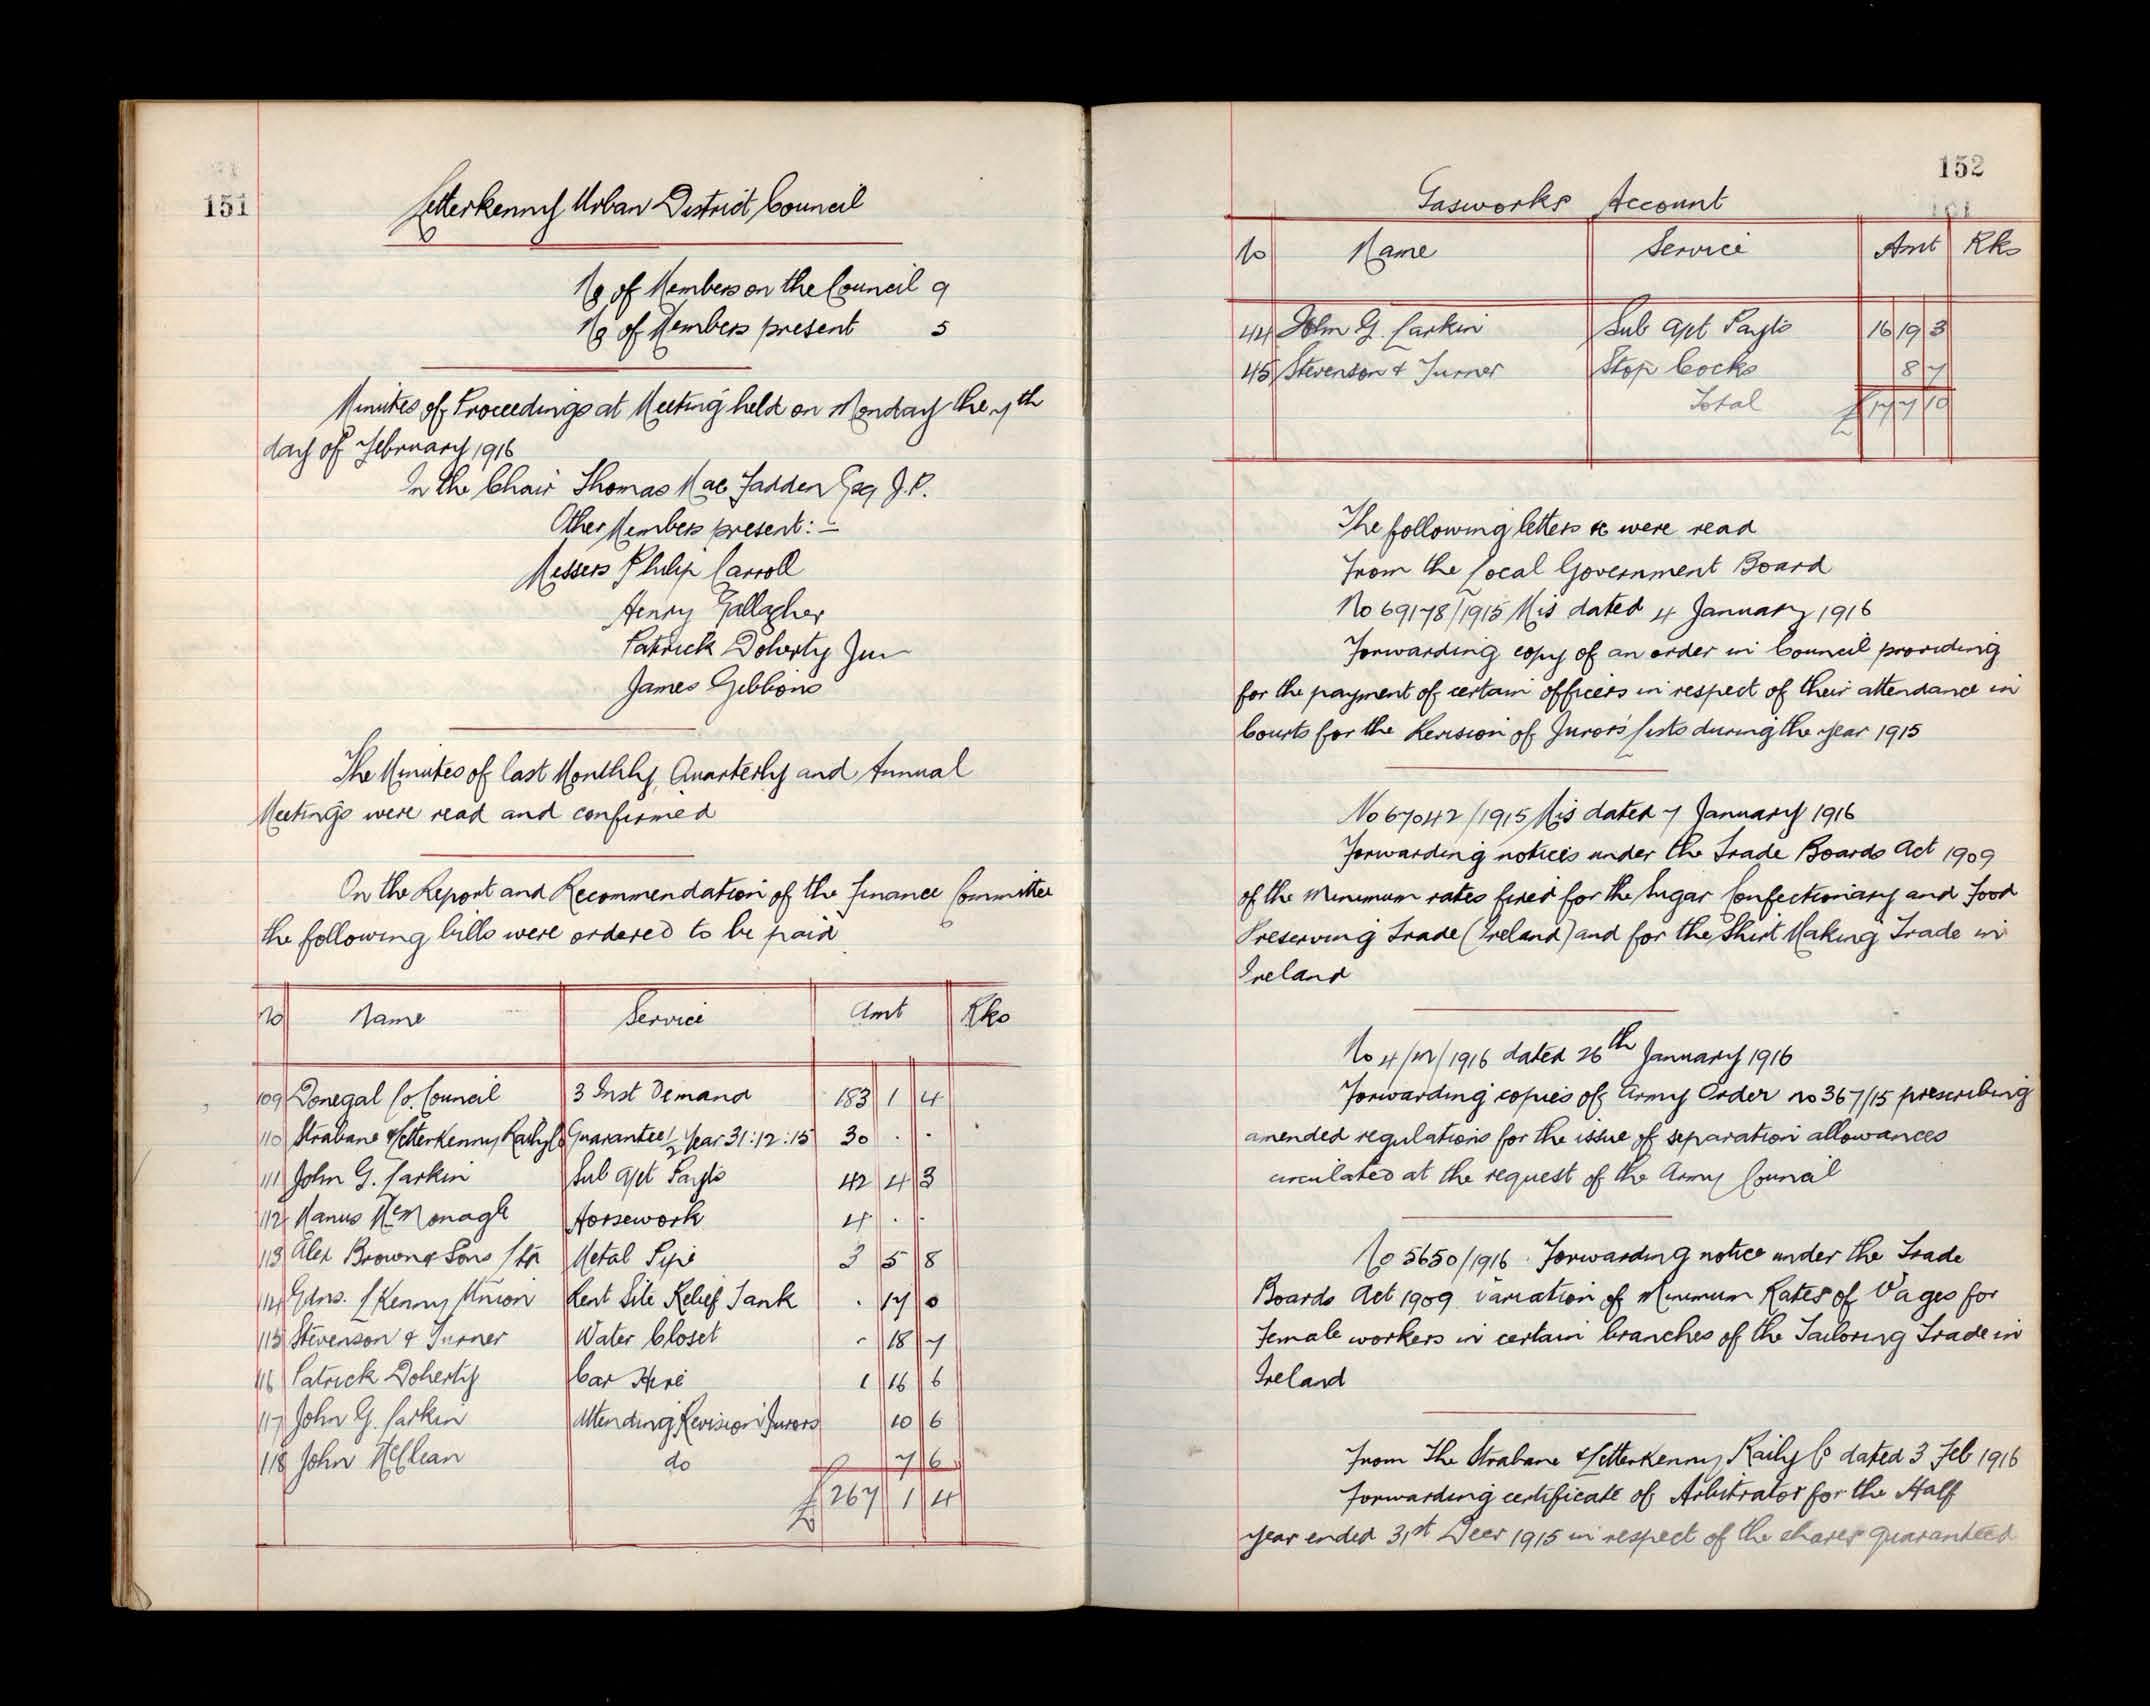 151
Letterkenny Urban District Council
No of Members on the Council 9
No of Members present 5
Minutes of Proceedings at Meeting held on Monday the 7th
day of February 1916
In the Chair Thomas Mac Fadden Esq J.P.
Other Members present: -
Messers Philip Carroll
Henry Gallagher
Patrick Doherty Jun
James Gibbons
The Minutes of last Monthly, Quarterly and Annual
Meetings were read and confirmed
On the Report and Recommendation of the Finance Committee
the following bills were ordered to be paid
No Name Service Amt Rks
109 Donegal Co. Council 3 Inst Demand 183 1 4
110 Strabane & Letterkenny Raily Co Guarantee 1/2 Year 31:12:15 30 . .
111 John G. Larkin Sub a/ct Payts 42 4 3
112 Manus McMonagle Horsework 4 . .
113 Alex Brown & Sons Ltd Metal Pipe 3 5 8
114 Gdns. L'Kenny Union Rent Site Relief Tank . 17 0
115 Stevenson & Turner Water Closet - 18 7
116 Patrick Doherty Car Hire 1 16 6
117 John G. Larkin Attending Revision Jurors 10 6
118 John McClean do 7 6
£ 267 1 4
152
Gasworks Account
No Name Service Amt Rks
44 John G. Larkin Sub a/ct Payts 16 19 3
45 Stevenson & Turner Stop Cocks 8 7
Total £ 17 7 10
The following letters &c were read
From the Local Government Board
No 69178/1915 Mis dated 4 January 1916
Forwarding copy of an order in Council providing
for the payment of certain officers in respect of their attendance in
Courts for the Revision of Juror's Lists during the year 1915
No 67042/1915 Mis dated 7 January 1916
Forwarding notices under the Trade Boards Act 1909
of the Minimum rates fixed for the Sugar Confectionary and Food
Preserving Trade (Ireland) and for the Shirt Making Trade in
Ireland
No 4/M/1916 dated 26th January 1916
Forwarding copies of Army Order no 367/15 prescribing
amended regulations for the issue of separation allowances
circulated at the request of the Army Council
No 5650/1916. Forwarding notice under the Trade
Boards Act 1909 variation of Minimum Rates of Wages for
Female workers in certain branches of the Tailoring Trade in
Ireland
From The Strabane & Letterkenny Raily Co dated 3 Feb 1916
Forwarding certificate of Arbitrator for the Half
year ended 31st Decr 1915 in respect of the shares guaranteed